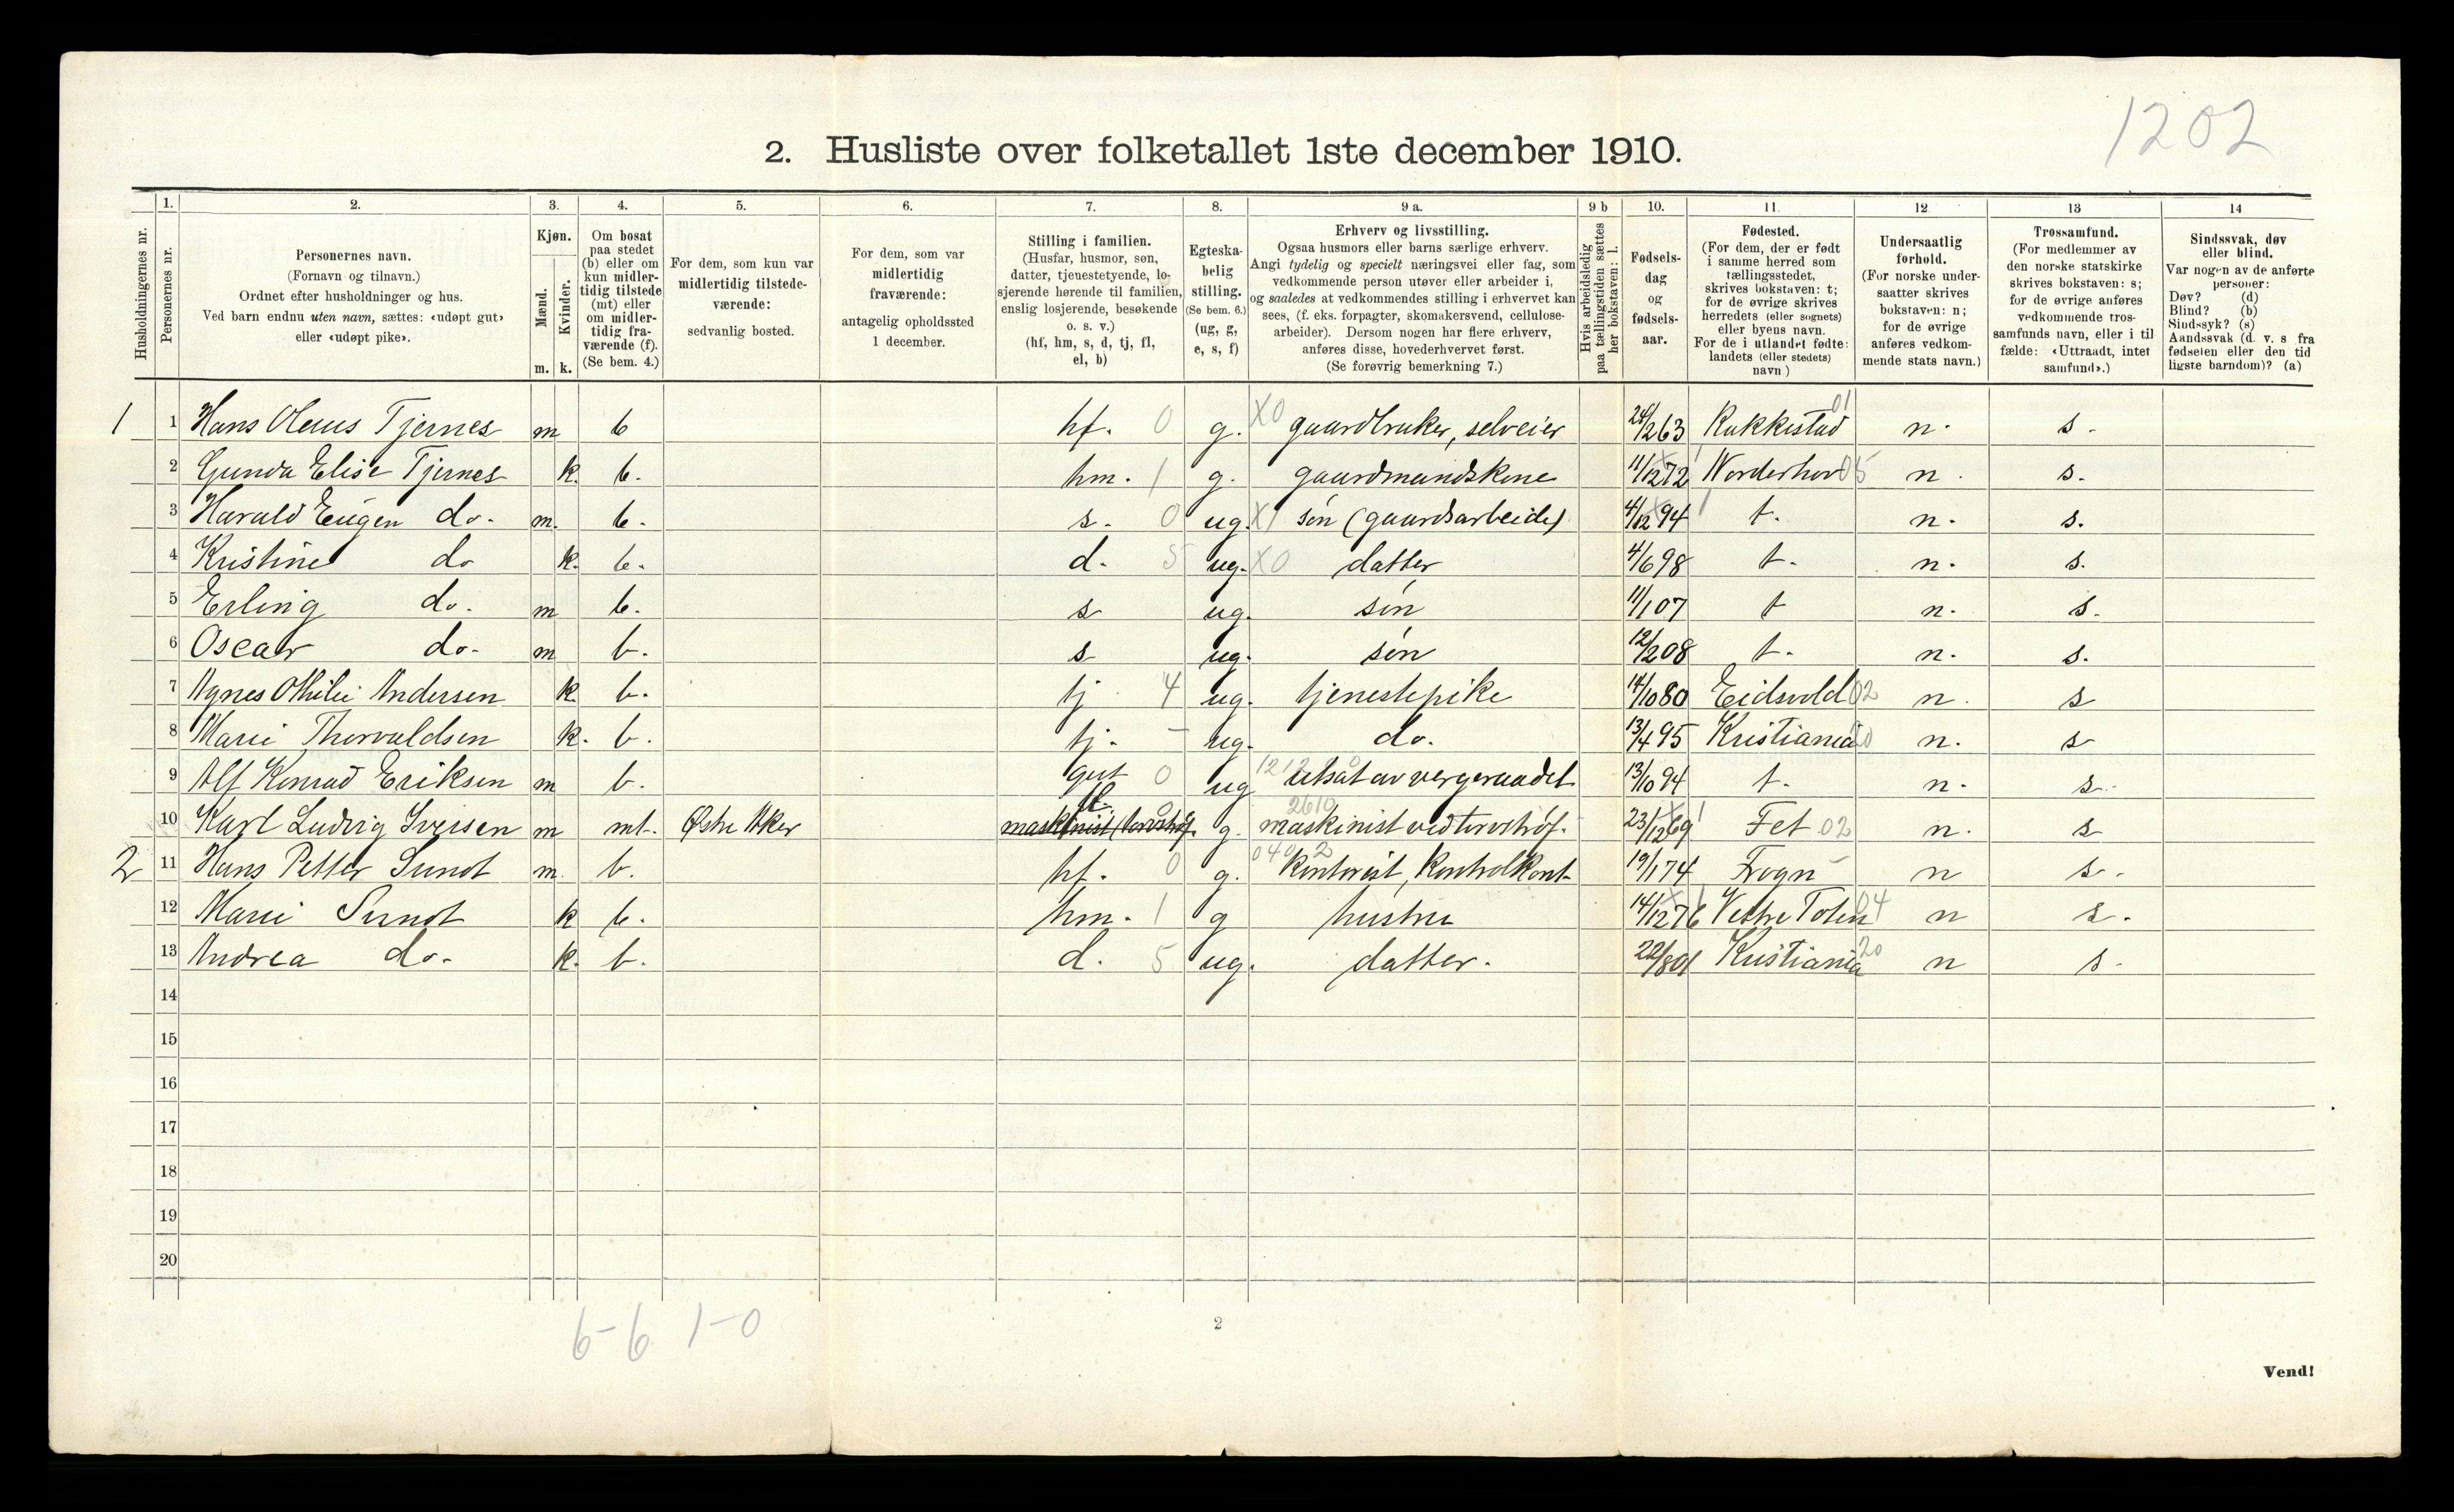 1202
2. Husliste over folketallet 1ste december 1910.
Husholdningernes nr.
1. Personernes nr.
2. Personernes navn.
(Fornavn og tilnavn.)
Ordnet efter husholdninger og hus.
Ved barn endnu uten navn, sættes: «udøpt gut»
eller «udøpt pike».
3. Kjøn.
Mænd. Kvinder.
m. k.
4. Om bosat
paa stedet
(b) eller om
kun midler-
tidig tilstede
(mt) eller
om midler-
tidig fra-
værende (f).
(Se bem. 4.)
5. For dem, som kun var
midlertidig tilstede-
værende:
sedvanlig bosted.
6. For dem, som var
midlertidig
fraværende:
antagelig opholdssted
1 december.
7. Stilling i familien.
(Husfar, husmor, søn,
datter, tjenestetyende, lo-
sjerende hørende til familien,
enslig losjerende, besøkende
o. s. v.)
(hf, hm, s, d, tj, fl,
el, b)
8. Egteska-
belig
stilling.
(Se bem. 6.)
(ug, g,
e, s, f)
9 a. Erhverv og livsstilling.
Ogsaa husmors eller barns særlige erhverv.
Angi tydelig og specielt næringsvei eller fag, som
vedkommende person utøver eller arbeider i,
og saaledes at vedkommendes stilling i erhvervet kan
sees, (f. eks. forpagter, skomakersvend, cellulose-
arbeider). Dersom nogen har flere erhverv,
anføres disse, hovederhvervet først.
(Se forøvrig bemerkning 7.)
9 b Hvis arbeidsledig
paa tællingstiden sættes
her bokstaven: l.
10. Fødsels-
dag
og
fødsels-
aar.
11. Fødested.
(For dem, der er født
i samme herred som
tællingsstedet,
skrives bokstaven: t;
for de øvrige skrives
herredets (eller sognets)
eller byens navn.
For de i utlandet fødte:
landets (eller stedets)
navn)
12 Undersaatlig
forhold.
(For norske under-
saatter skrives
bokstaven: n;
for de øvrige
anføres vedkom-
mende stats navn.)
13 Trossamfund.
(For medlemmer av
den norske statskirke
skrives bokstaven: s;
for de øvrige anføres
vedkommende tros-
samfunds navn, eller i til
fælde: «Uttraadt, intet
samfund».)
14 Sindssvak, døv
eller blind.
Var nogen av de anførte
personer:
Døv? (d)
Blind? (b)
Sindssyk? (s)
Aandssvak (d. v. s fra
fødselen eller den tid
ligste barndom)? (a)
1 1 Hans Olaus Tjernes m b hf. 0 g. X0 gaardbruker, selveier 24/2 63 Rakkestad 01 n. s.
2 Gunda Elise Tjernes k. b. hm. 1 g. gaardmandskone 11/12 72 Norderhov 05 n. s.
3 Harald Eugen do. m. b. s. 0 ug. X1 søn (gaardsarbeide) 4/12 94 t. n. s.
4 Kristine do k. b. d. 5 ug. X0 datter 4/6 98 t. n. s.
5 Erling do. m b. s ug. søn 11/1 07 t n. s.
6 Oscar do. m b. s ug. søn 12/2 08 t. n. s.
7 Agnes Othilie Andersen k. b. tj 4 ug. tjenestepike 14/10 80 Eidsvold 02 n. s
8 Marie Thorvaldsen k. b. tj. - ug. do. 13/4 95 Kristiania n. s
9 Alf Konrad Eriksen m b. gut 0 ug utsat av vergeraadet 13/10 94 t. n. s.
10 Karl Ludvig Iversen m mt. Østre Aker g. 2610 maskinist ved torvströf. 23/12 69 Fet 02 n. s
2 11 Hans Petter Sundt m. b. hf. 0 g. Kontorist, Kontrolkont 19/1 74 Frogn n s.
12 Marie Sundt k b. hm. 1 g hustru 14/12 76 Vestre Toten 04 n s.
13 Andrea do. k. b. d. 5 ug. datter. 22/8 01 Kristiania 20 n s.
14
15
16
17
18
19
20
6-6 1-0
2
Vend!